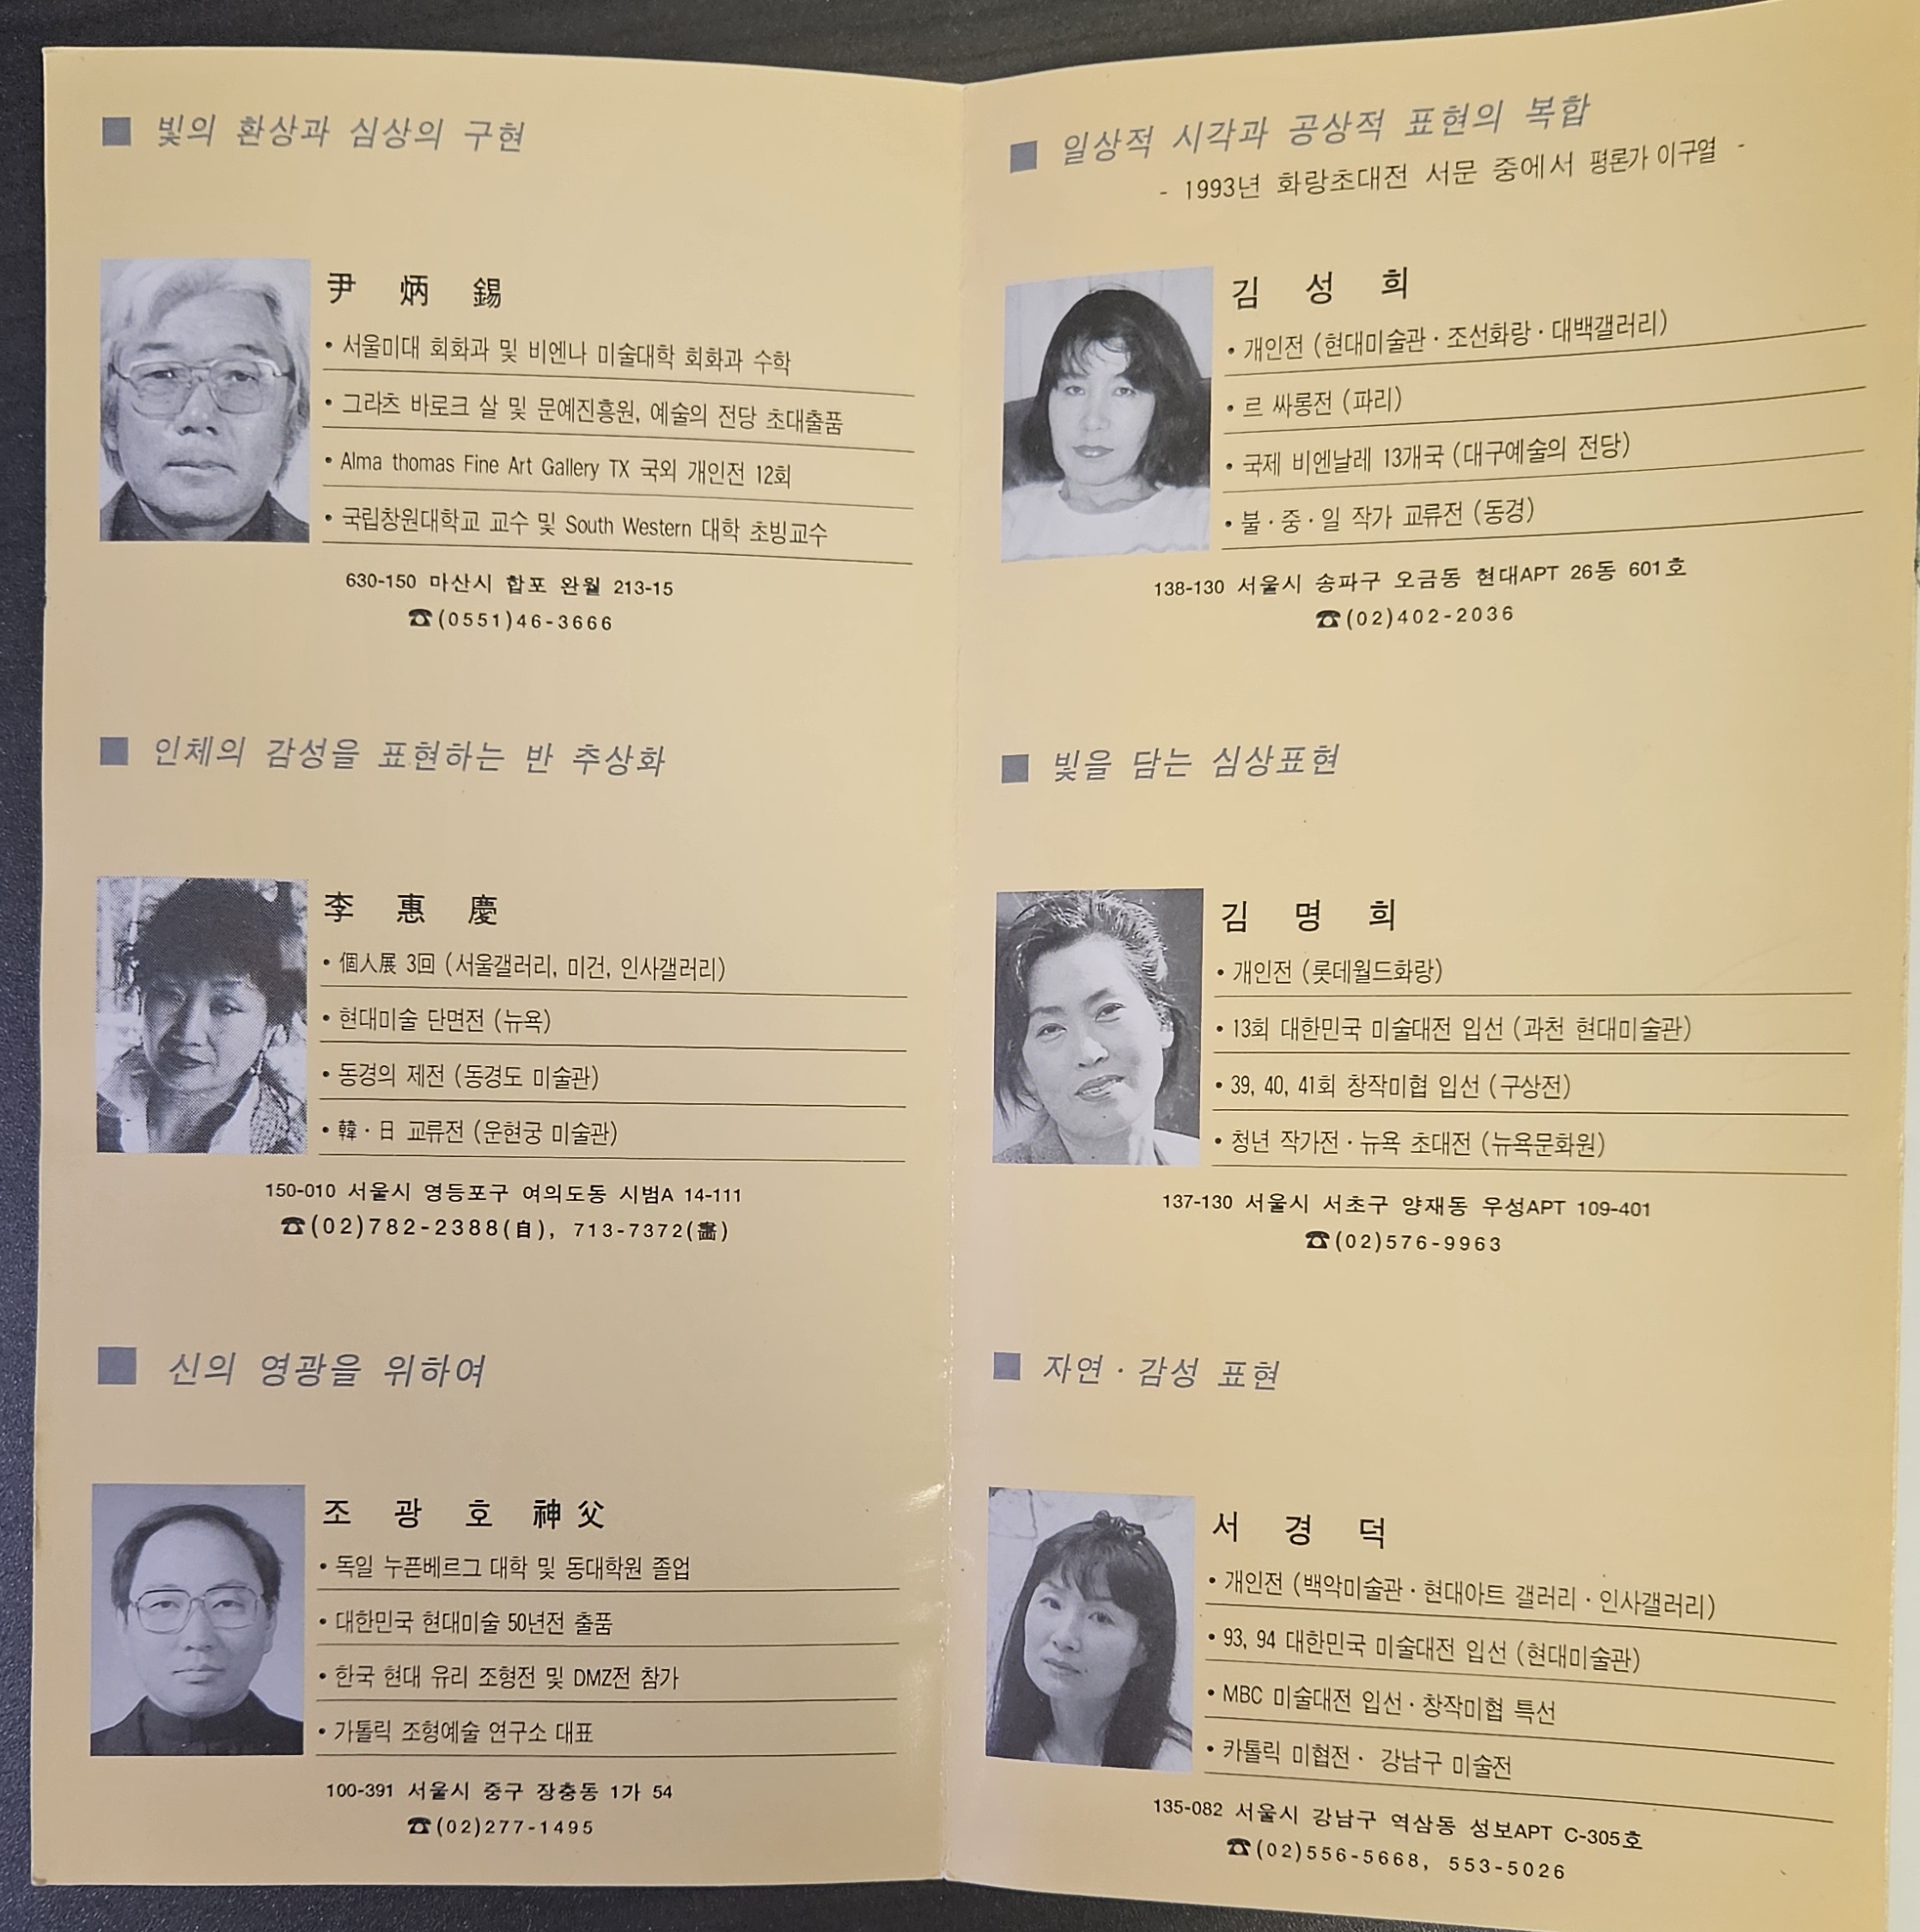 ■ 빛의 환상과 심상의 구현
尹 炳 錫
• 서울미대 회화과 및 비엔나 미술대학 회화과 수학
• 그라츠 바로크 살 및 문예진흥원, 예술의 전당 초대출품
• Alma thomas Fine Art Gallery TX 국외 개인전 12회
• 국립창원대학교 교수 및 South Western 대학 초빙교수
630-150 마산시 합포 완월 213-15
☎(0551)46-3666
■ 인체의 감성을 표현하는 반 추상화
李 惠 慶
• 個人展 3回 (서울갤러리, 미건, 인사갤러리)
• 현대미술 단면전 (뉴욕)
• 동경의 제전 (동경도 미술관)
• 韓·日 교류전 (운현궁 미술관)
150-010 서울시 영등포구 여의도동 시범A 14-111
☎(02)782-2388(自), 713-7372(畵)
■ 신의 영광을 위하여
조 광 호 神父
• 독일 누픈베르그 대학 및 동대학원 졸업
• 대한민국 현대미술 50년전 출품
• 한국 현대 유리 조형전 및 DMZ전 참가
• 가톨릭 조형예술 연구소 대표
100-391 서울시 중구 장충동 1가 54
☎(02)277-1495
■ 일상적 시각과 공상적 표현의 복합
- 1993년 화랑초대전 서문 중에서 평론가 이구열 -
김 성 희
• 개인전 (현대미술관·조선화랑·대백갤러리)
• 르 싸롱전 (파리)
• 국제 비엔날레 13개국 (대구예술의 전당)
• 불·중·일 작가 교류전 (동경)
138-130 서울시 송파구 오금동 현대APT 26동 601호
☎(02)402-2036
■ 빛을 담는 심상표현
김 명 희
• 개인전 (롯데월드화랑)
• 13회 대한민국 미술대전 입선 (과천 현대미술관)
• 39, 40, 41회 창작미협 입선 (구상전)
• 청년 작가전·뉴욕 초대전 (뉴욕문화원)
137-130 서울시 서초구 양재동 우성APT 109-401
☎(02)576-9963
■ 자연·감성 표현
서 경 덕
• 개인전 (백악미술관·현대아트 갤러리·인사갤러리)
• 93, 94 대한민국 미술대전 입선 (현대미술관)
• MBC 미술대전 입선·창작미협 특선
• 카톨릭 미협전· 강남구 미술전
135-082 서울시 강남구 역삼동 성보APT C-305호
☎(02)556-5668, 553-5026